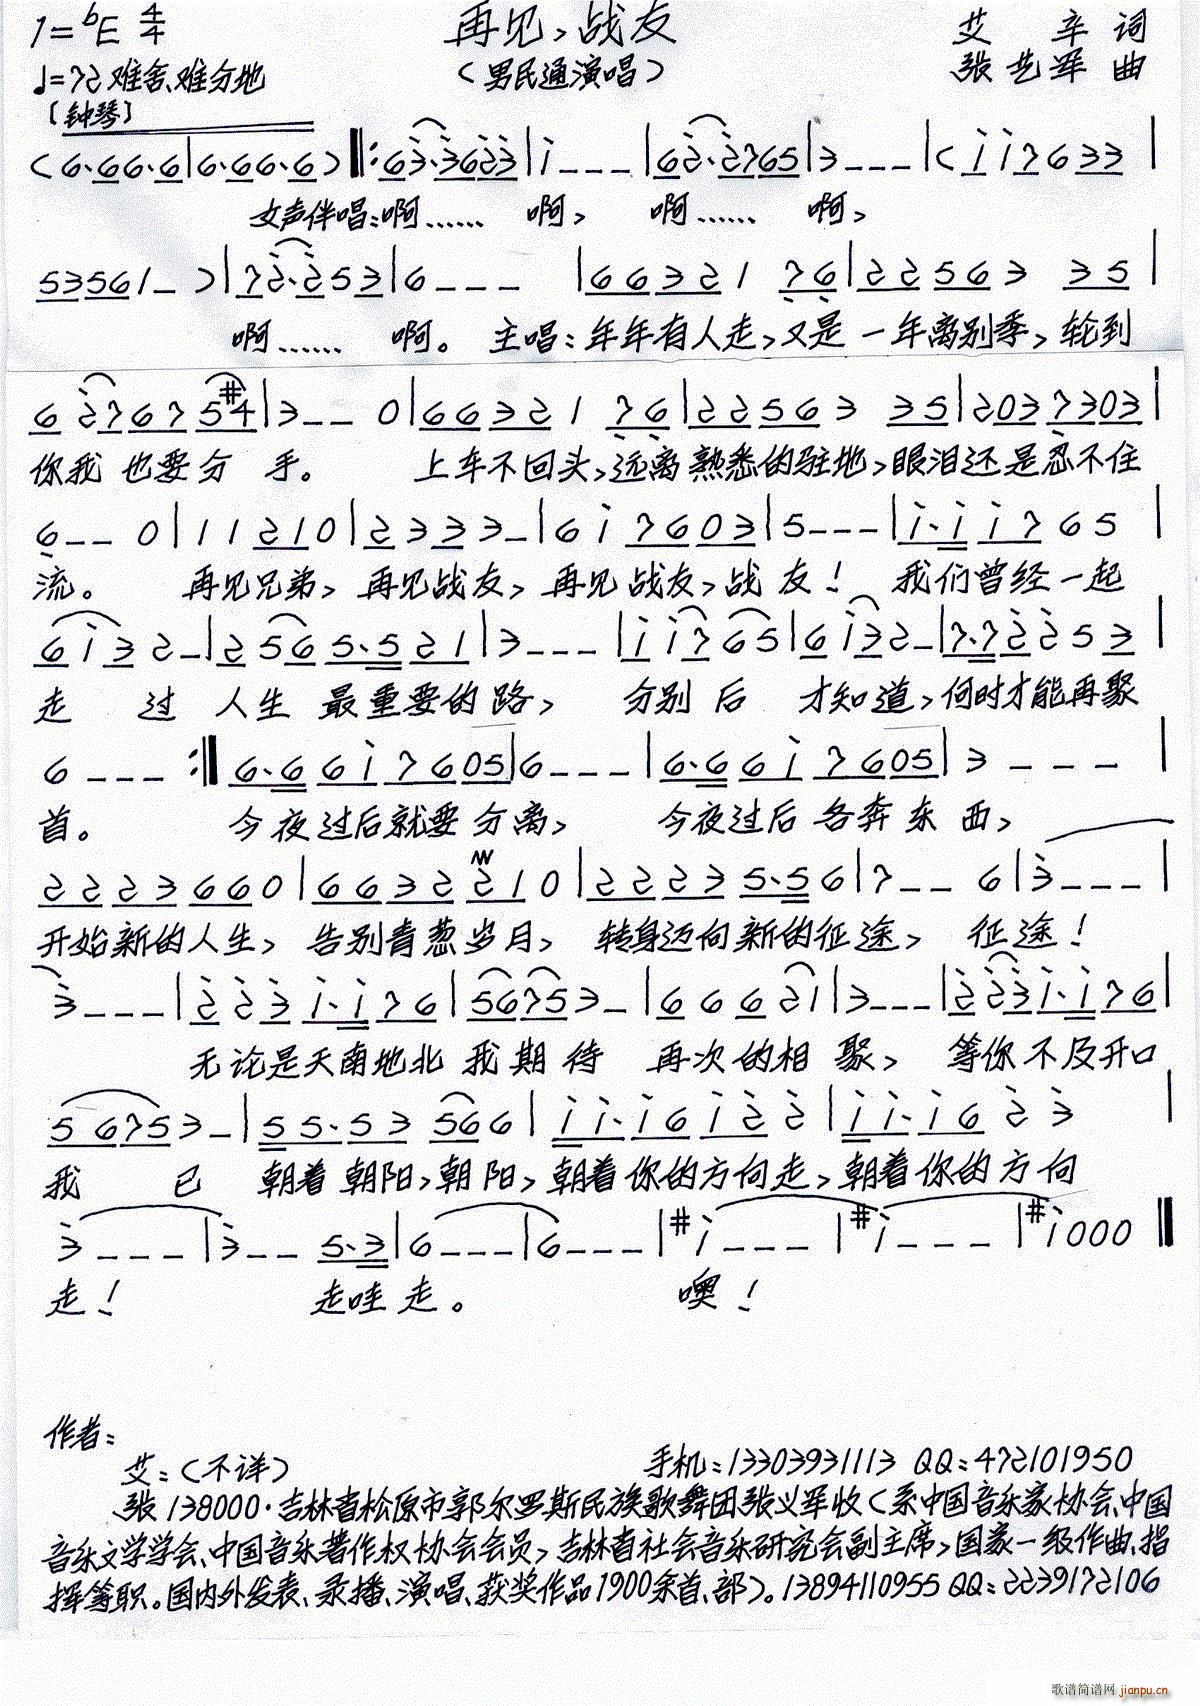 1=♭E 4/4 再见,战友 艾 辛 词
♩=72 难舍、难分地 (男民通演唱) 张艺军 曲
[钟琴]
(6·66·6|6·66·6)‖:63·3623|1---|62·2765|3---|(117633|
女声伴唱:啊…… 啊, 啊…… 啊,
53561-)|72·253|6---|66321 76|22563 35|
啊…… 啊。 主唱:年年有人走,又是一年离别季,轮到
6276754|3--0|66321 76|22563 35|2037303|
你我也要分手。 上车不回头,远离熟悉的驻地,眼泪还是忍不住
6--0|11210|2333-|617603|5---|1·11765|
流。 再见兄弟, 再见战友, 再见战友,战友! 我们曾经一起
6132-|2565·521|3---|11765|6132-|7·72253|
走 过 人生 最重要的路, 分别后 才知道,何时才能再聚
6---:‖6·6617605|6---|6·6617605|3---|
首。 今夜过后就要分离, 今夜过后各奔东西,
2223660|6632210|22235·56|7--6|3---|
开始新的人生, 告别青葱岁月, 转身迈向新的征途, 征途!
3---|2231·176|56753-|66621|3---|2231·176|
无论是天南地北我期待 再次的相聚, 等你不及开口
56753-|55·53 566|11·16122|11·1623|
我 已 朝着朝阳,朝阳,朝着你的方向走,朝着你的方向
3---|3--5·3|6---|6---|#1---|#1---|#1000‖
走! 走哇走。 噢!
作者:
艾:(不详) 手机:13303931113 QQ:472101950
张 138000·吉林省松原市郭尔罗斯民族歌舞团张义军收(系中国音乐家协会、中国
音乐文学学会、中国音乐著作权协会会员,吉林省社会音乐研究会副主席,国家一级作曲、指
挥等职。国内外发表、录播、演唱、获奖作品1900余首、部)。13894110955 QQ:2239172106
歌谱简谱网 jianpu.cn